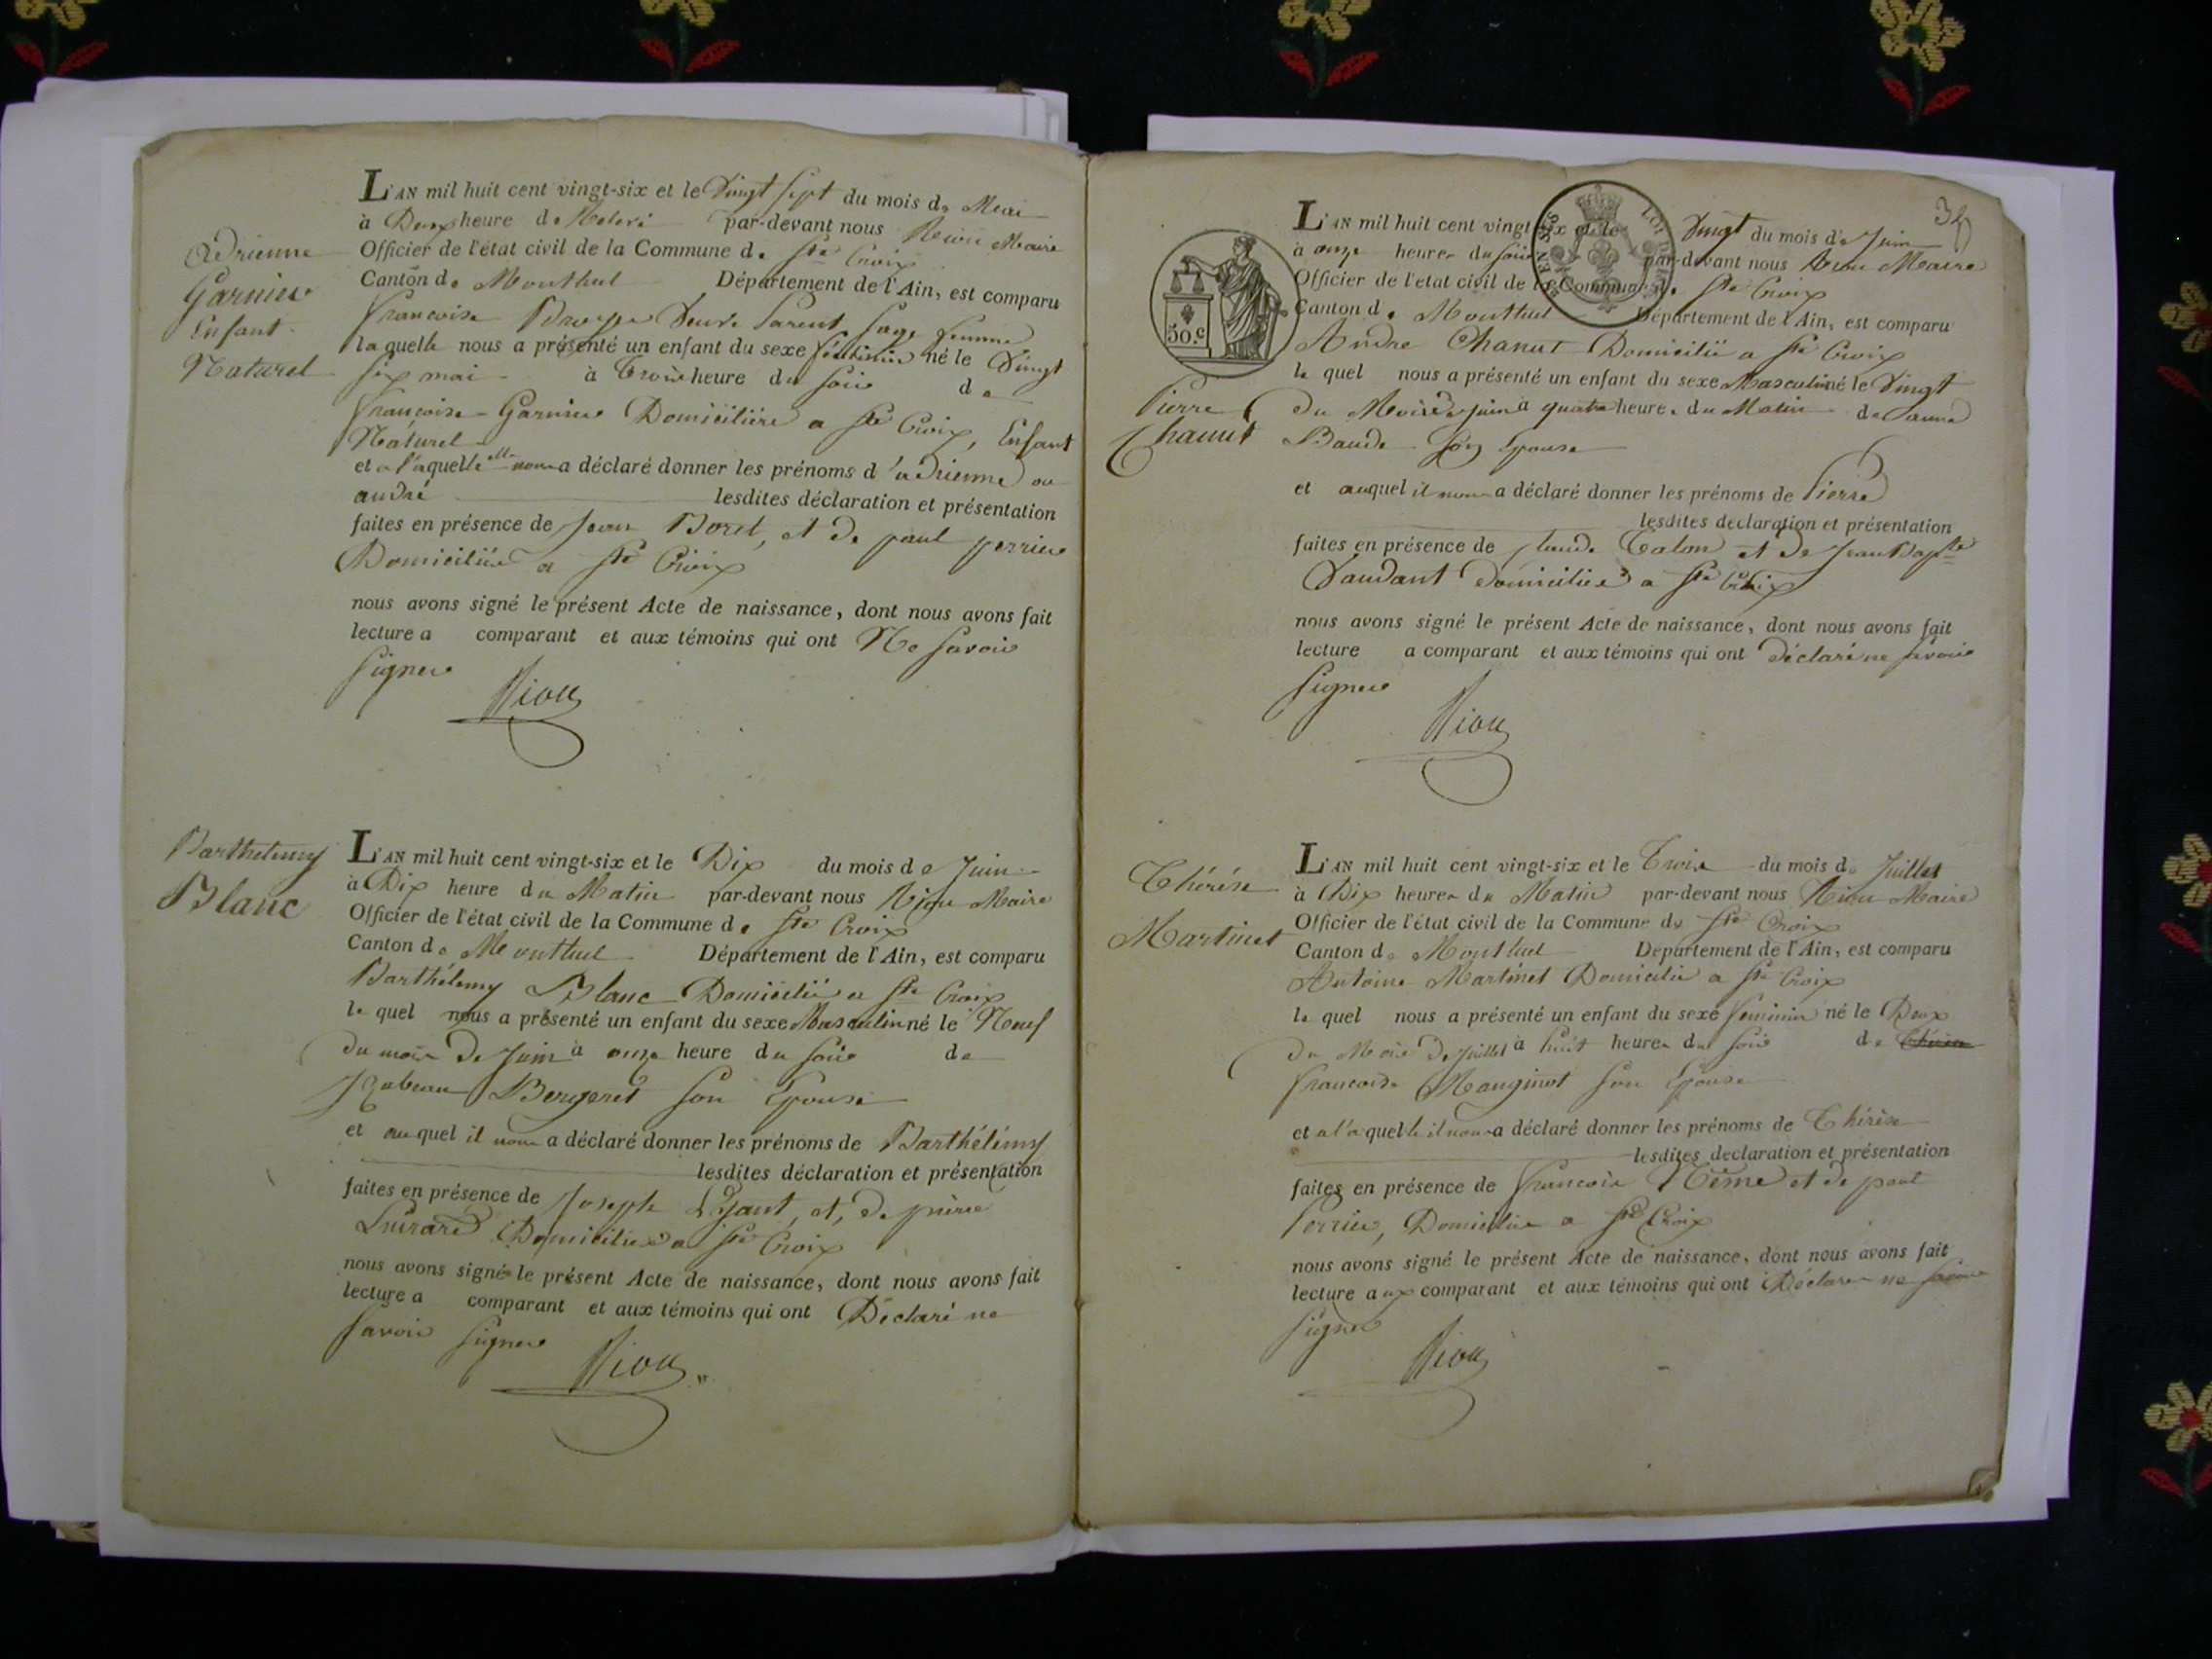 Adrienne
Garnier
Enfant
Naturel
L'AN mil huit cent vingt-six et le Vingt Sept du mois de Mai
à Deux heure de par-devant nous Riou Maire
Officier de l'état civil de la Commune de Ste Croix
Canton de Montluel Département de l'Ain, est comparu
francoise Veuve Parent, Sage femme
laquelle nous a présenté un enfant du sexe féminin né le Vingt
six mai à Trois heure du Soir de
françoise Garnier Domicilière a Ste Croix, Enfant
Naturel
et a l'aquelle elle nous a déclaré donner les prénoms d'adrienne ou
andré lesdites déclaration et présentation
faites en présence de Jean Borel, et de paul perrier
Domiciliés a Ste Croix
nous avons signé le présent Acte de naissance, dont nous avons fait
lecture a comparant et aux témoins qui ont Ne Savoir
Signer
Riou
Barthelemy
Blanc
L'AN mil huit cent vingt-six et le Dix du mois de Juin
à Dix heure du Matin par-devant nous Riou Maire
Officier de l'état civil de la Commune de Ste Croix
Canton de Montluel Département de l'Ain, est comparu
Barthélemy Blanc Domicilié a Ste Croix
le quel nous a présenté un enfant du sexe Masculin né le Neuf
du mois de Juin à onze heure du Soir de
Izabeau Bergeret Son Epouse
et au quel il nous a déclaré donner les prénoms de Barthélémy
lesdites déclaration et présentation
faites en présence de Joseph et, de pierre
Domiciliés a Ste Croix
nous avons signé le présent Acte de naissance, dont nous avons fait
lecture a comparant et aux témoins qui ont Déclaré ne
Savoir Signer
Riou
50.c
Pierre
Chanut
L'AN mil huit cent vingt-six et le Vingt du mois de Juin
à onze heures du Soir par-devant nous Riou Maire
Officier de l'état civil de la Commune de Ste Croix
Canton de Montluel Département de l'Ain, est comparu
Andre Chanut Domicilié a Ste Croix
le quel nous a présenté un enfant du sexe Masculin né le Vingt
du Mois de juin à quatre heure du Matin de anne
Baude Son Epouse
et auquel il nous a déclaré donner les prénoms de Pierre
lesdites declaration et présentation
faites en présence de Claude Talon et de Jean Bapte
Vaudant domiciliés a Ste Croix
nous avons signé le présent Acte de naissance, dont nous avons fait
lecture a comparant et aux témoins qui ont déclaré ne Savoir
Signer
Riou
Thérèse
Martinet
L'AN mil huit cent vingt-six et le Trois du mois de Juillet
à Dix heures du Matin par-devant nous Riou Maire
Officier de l'état civil de la Commune de Ste Croix
Canton de Montluel Département de l'Ain, est comparu
Antoine Martinet Domicilié a Ste Croix
le quel nous a présenté un enfant du sexe féminin né le Deux
du Mois de Juillet à huit heures du Soir de
francoise Manginot Son Epouse
et a l'a quelle il nous a déclaré donner les prénoms de Thérèse
lesdites declaration et présentation
faites en présence de francois Néme et de paul
Perrier, Domiciliés a Ste Croix
nous avons signé le présent Acte de naissance, dont nous avons fait
lecture aux comparant et aux témoins qui ont Déclarer ne Savoir
Signer
Riou